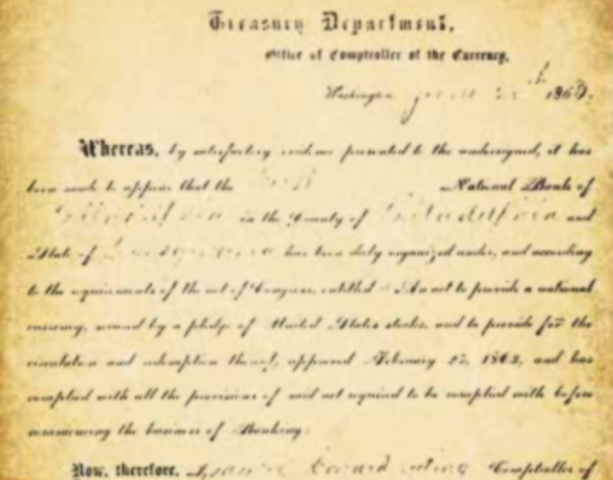 Treasury Department,
Office of Comptroller of the Currency,
Washington, June 186
Whereas, by satisfactory evidence presented to the undersigned, it has
been made to appear that the National Bank of
Philadelphia in the County of Philadelphia and
State of Pennsylvania has been duly organized under, and according
to the requirements of the act of Congress, entitled "An act to provide a national
currency, secured by a pledge of United States stocks, and to provide for the
circulation and redemption thereof, approved February 25, 1863, and has
complied with all the provisions of said act required to be complied with before
commencing the business of Banking:
Now, therefore, I, Comptroller of